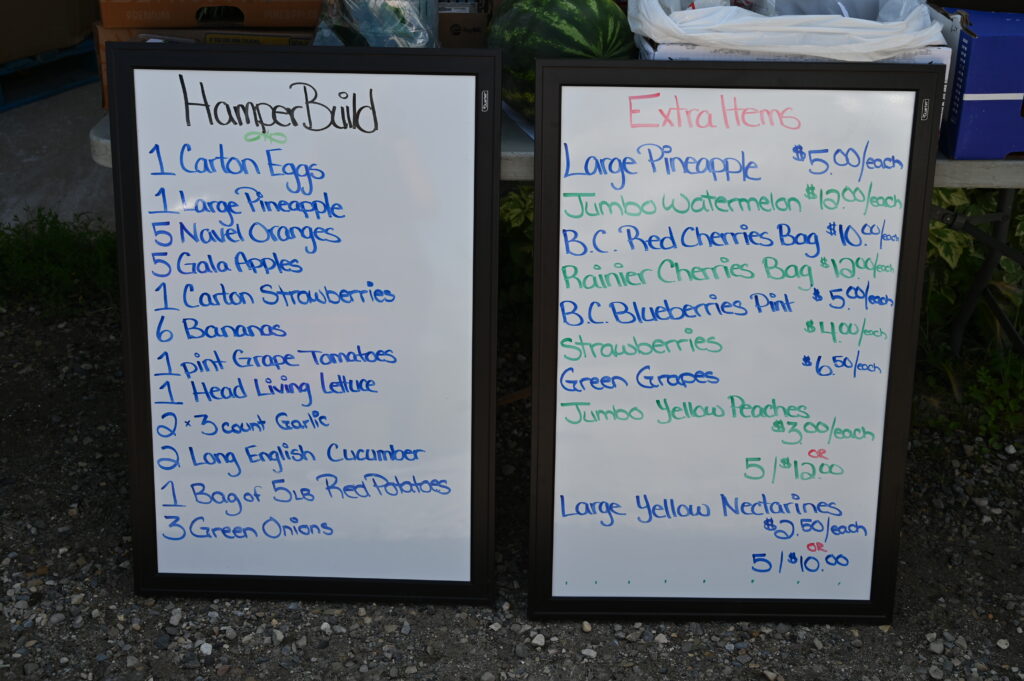 PREMIUM
Hamper Build
1 Carton Eggs
1 Large Pineapple
5 Navel Oranges
5 Gala Apples
1 Carton Strawberries
6 Bananas
1 pint Grape Tomatoes
1 Head Living Lettuce
2 x 3 count Garlic
2 Long English Cucumber
1 Bag of 5LB Red Potatoes
3 Green Onions
Extra Items
Large Pineapple $5.00/each
Jumbo Watermelon $12.00/each
B.C. Red Cherries Bag $10.00/each
Rainier Cherries Bag $12.00/each
B.C. Blueberries Pint $5.00/each
Strawberries $4.00/each
Green Grapes $6.50/each
Jumbo Yellow Peaches
$3.00/each
OR
5/$12.00
Large Yellow Nectarines
$2.50/each
OR
5/$10.00